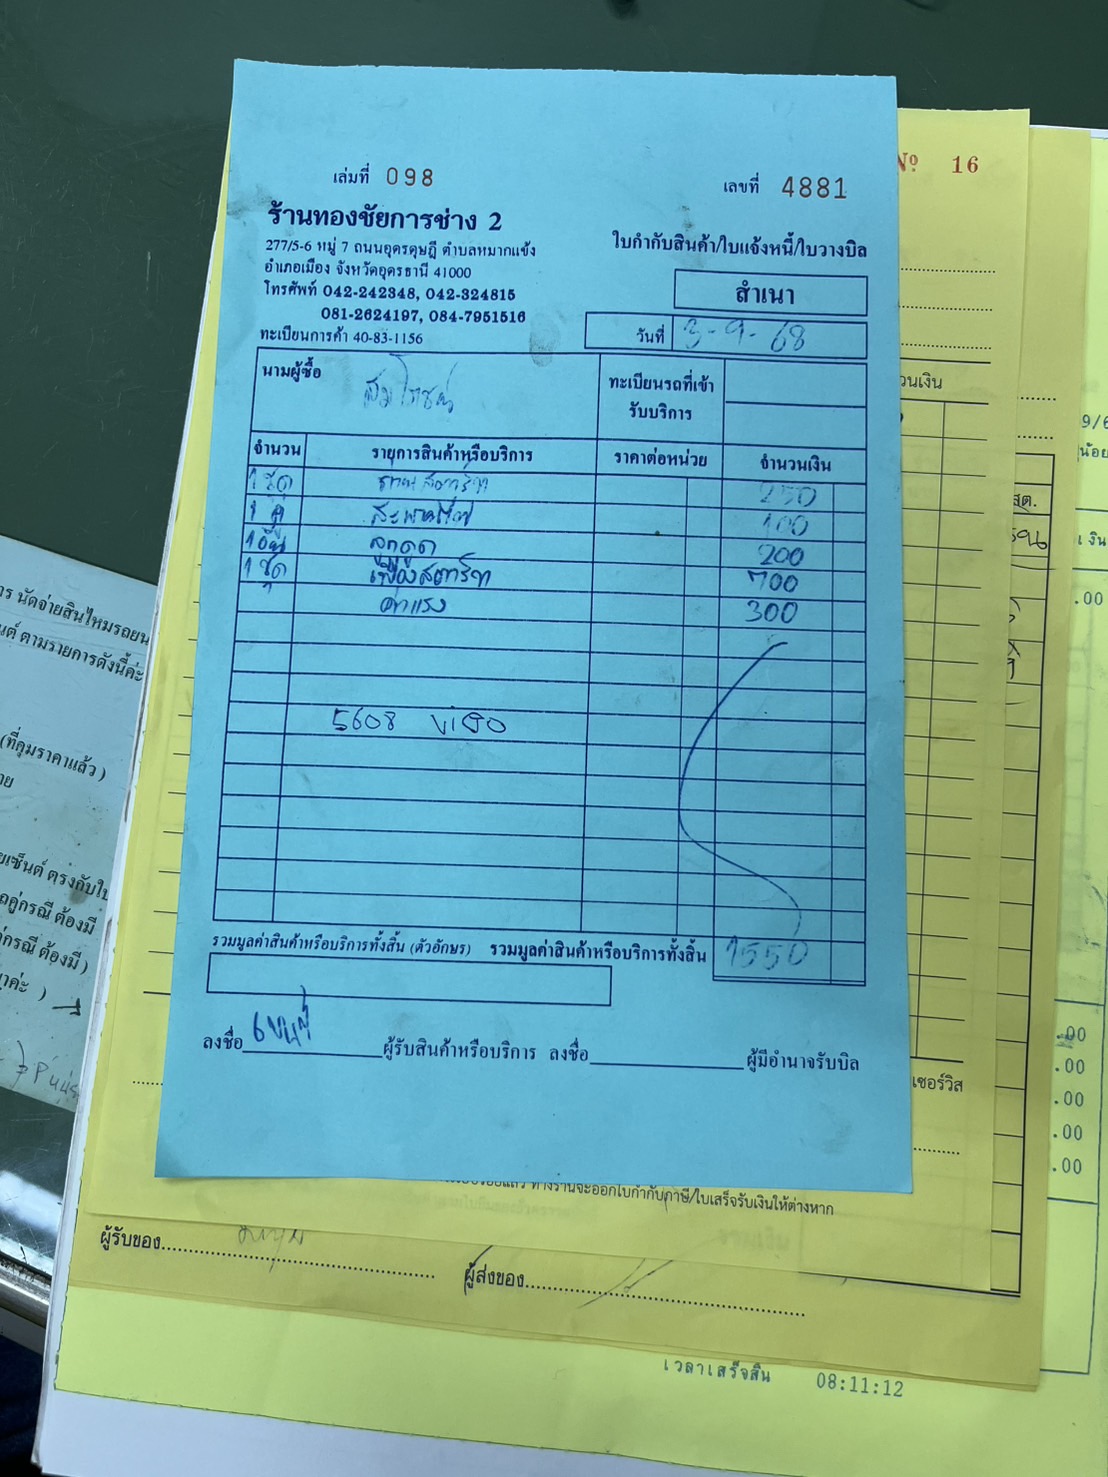 เล่มที่ 098
เลขที่ 4881
ร้านทองชัยการช่าง 2
277/5-6 หมู่ 7 ถนนอุดรดุษฎี ตำบลหมากแข้ง
อำเภอเมือง จังหวัดอุดรธานี 41000
โทรศัพท์ 042-242348, 042-324815
081-2624197, 084-7951516
ทะเบียนการค้า 40-83-1156
ใบกำกับสินค้า/ใบแจ้งหนี้/ใบวางบิล
สำเนา
วันที่ 3-9-68
นามผู้ซื้อ สมโภชน์
ทะเบียนรถที่เข้า
รับบริการ
จำนวน รายการสินค้าหรือบริการ ราคาต่อหน่วย จำนวนเงิน
1 ชุด 250
1 คู่ 100
1 อัน ลูกดูด 200
1 ชุด เฟืองสตาร์ท 700
ค่าแรง 300
5608 VIGO
รวมมูลค่าสินค้าหรือบริการทั้งสิ้น (ตัวอักษร) รวมมูลค่าสินค้าหรือบริการทั้งสิ้น 1550
ลงชื่อ ผู้รับสินค้าหรือบริการ ลงชื่อ ผู้มีอำนาจรับบิล
Nº 16
วนเงิน
9/6
สต.
เงิน
.00
.00
.00
.00
.00
.00
เซอร์วิส
ทางร้านจะออกใบกำกับภาษี/ใบเสร็จรับเงินให้ต่างหาก
ผู้รับของ
ผู้ส่งของ
เวลาเสร็จสิ้น 08:11:12
การ นัดจ่ายสินไหมรถยน
นต์ ตามรายการดังนี้ค่ะ
(ที่คุมราคาแล้ว)
าย
ยเซ็นต์ ตรงกับใบ
ถคู่กรณี ต้องมี
ู่กรณี ต้องมี)
าค่ะ )